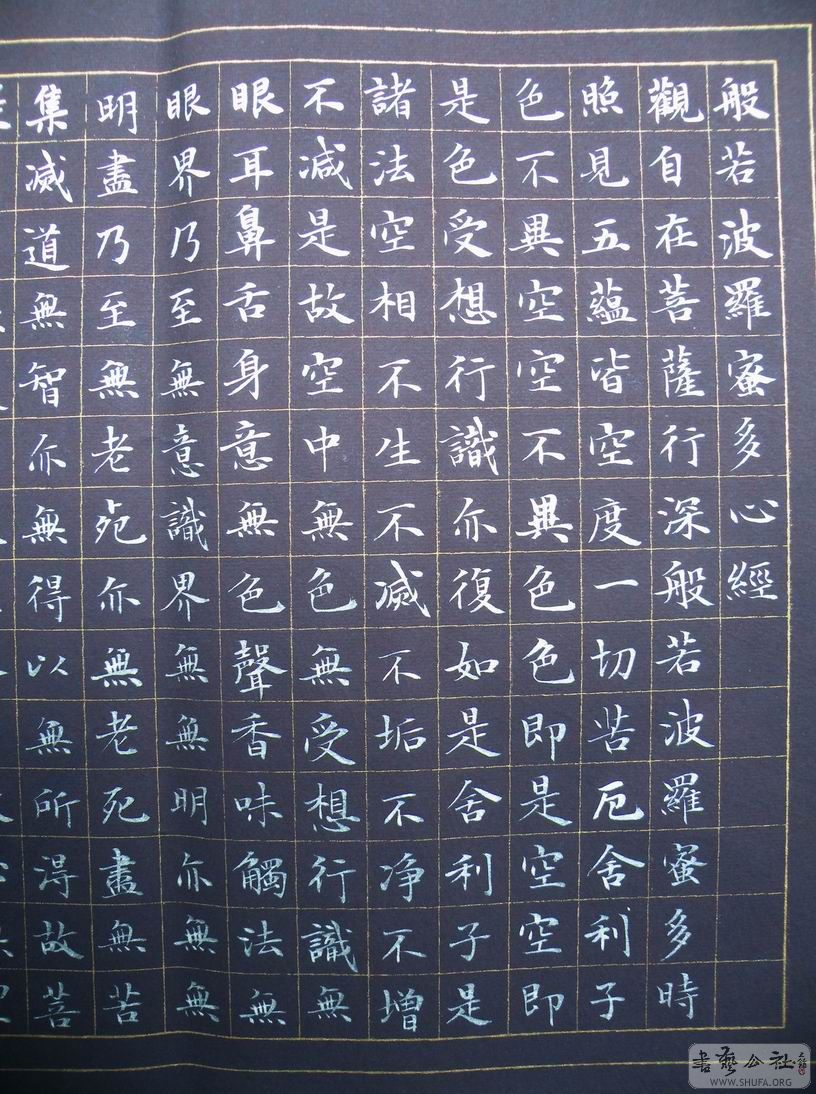 般若波羅蜜多心經
觀自在菩薩行深般若波羅蜜多時
照見五蘊皆空度一切苦厄舍利子
色不異空空不異色色即是空空即
是色受想行識亦復如是舍利子是
諸法空相不生不滅不垢不净不增
不減是故空中無色無受想行識無
眼耳鼻舌身意無色聲香味觸法無
眼界乃至無意識界無無明亦無無
明盡乃至無老死亦無老死盡無苦
集滅道無智亦無得以無所得故菩
書藝公社
WWW.SHUFA.ORG